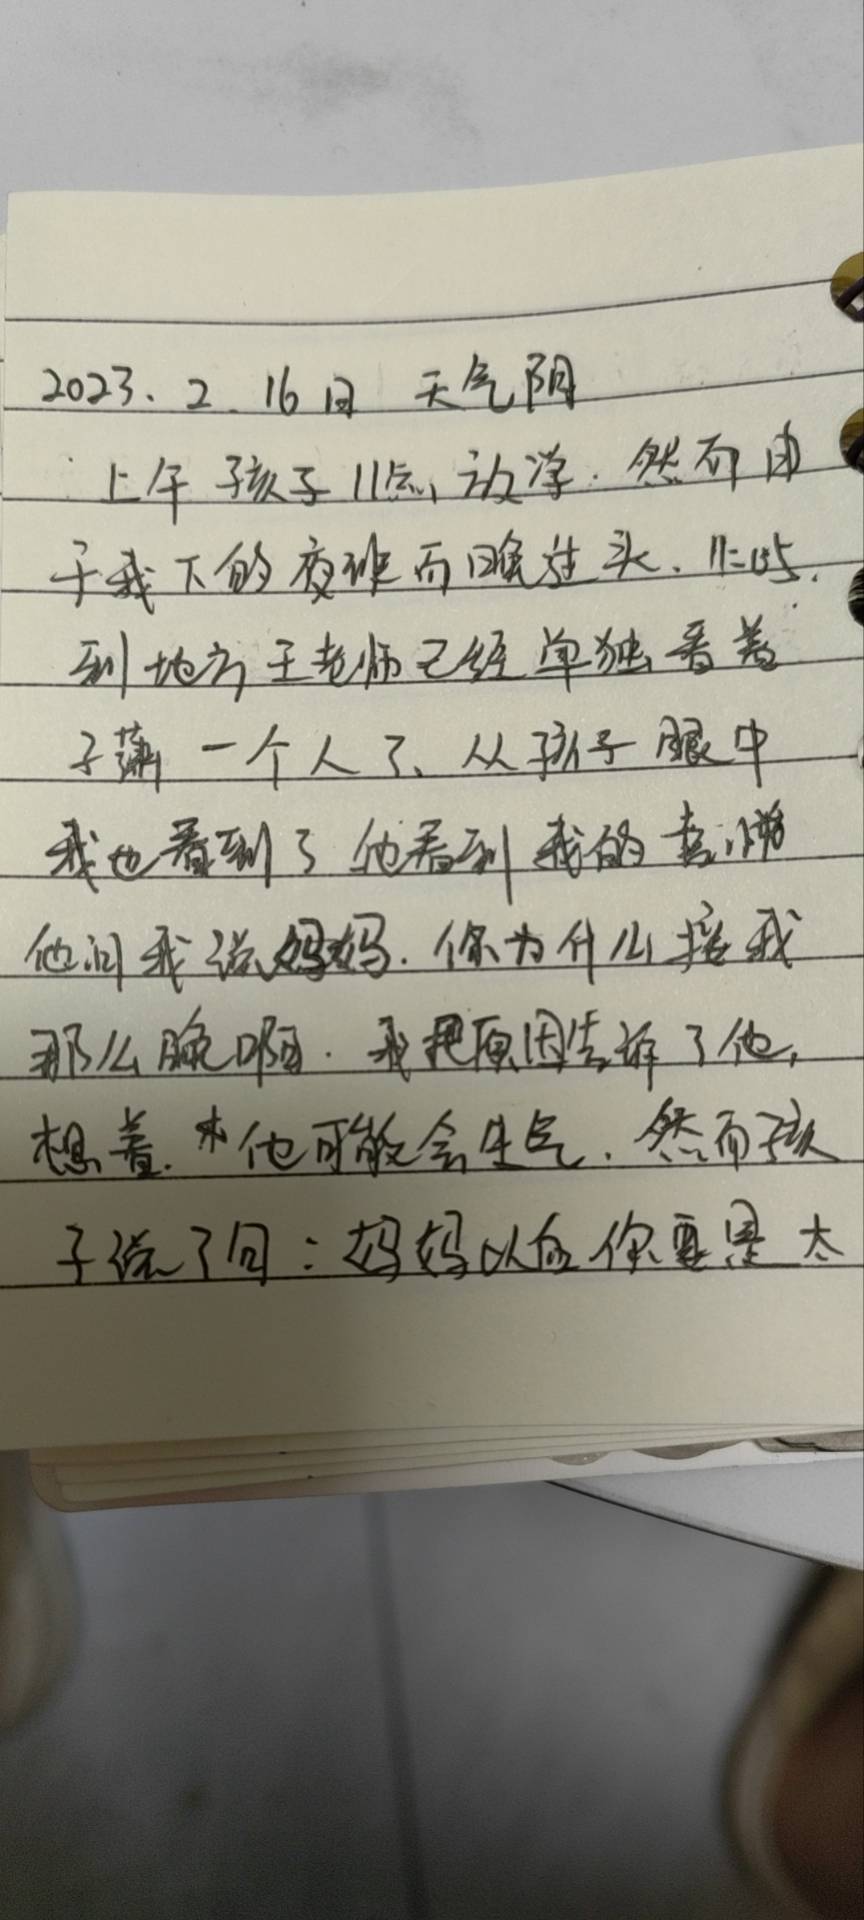 2023.2.16日 天气阴
上午孩子11点放学.然而由
于我下的夜班而睡过头.11:05.
到地方王老师已经单独看着
子潇一个人了、从孩子眼中
我也看到了他看到我的喜悦
他问我说妈妈.你为什么接我
那么晚啊.我把原因告诉了他,
想着.他可能会生气.然而孩
子说了句:妈妈以后你要是太